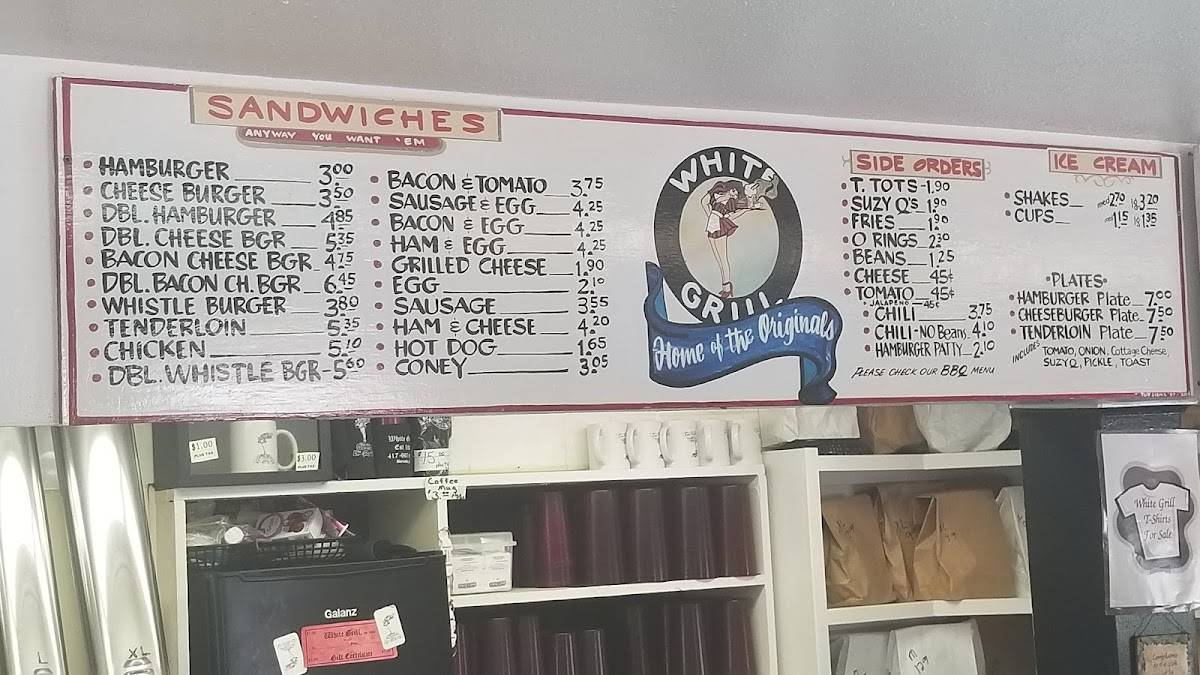 SANDWICHES
ANYWAY YOU WANT 'EM
• HAMBURGER 3.00
• CHEESE BURGER 3.50
• DBL. HAMBURGER 4.85
• DBL. CHEESE BGR 5.35
• BACON CHEESE BGR 4.75
• DBL. BACON CH. BGR 6.45
• WHISTLE BURGER 3.80
• TENDERLOIN 5.35
• CHICKEN 5.10
• DBL. WHISTLE BGR - 5.60
• BACON & TOMATO 3.75
• SAUSAGE & EGG 4.25
BACON & EGG 4.25
• HAM & EGG 4.25
GRILLED CHEESE 1.90
EGG 2.10
• SAUSAGE 3.55
• HAM & CHEESE 4.20
• HOT DOG 1.65
• CONEY 3.05
WHITE GRILL
Home of the Originals
SIDE ORDERS
• T. TOTS - 1.90
• SUZY Q'S 1.90
• FRIES 1.90
• O RINGS 2.30
• BEANS 1.25
• CHEESE 45¢
• TOMATO 45¢
• JALAPENO 45¢
• CHILI 3.75
• CHILI - NO Beans 4.10
• HAMBURGER PATTY 2.10
PLEASE CHECK OUR BBQ MENU
ICE CREAM
• SHAKES med 2.70 lg 3.20
• CUPS 1.15 lg 1.35
• PLATES •
• HAMBURGER Plate 7.00
• CHEESEBURGER Plate 7.50
• TENDERLOIN Plate 7.50
INCLUDES TOMATO, ONION, Cottage Cheese,
SUZY Q, PICKLE, TOAST
$1.00
PLUS TAX
$3.00
PLUS TAX
White G
417-
Coffee
Mug
Galanz
White Grill
Gift Certificate
White Grill
T-Shirts
For Sale
L
XL